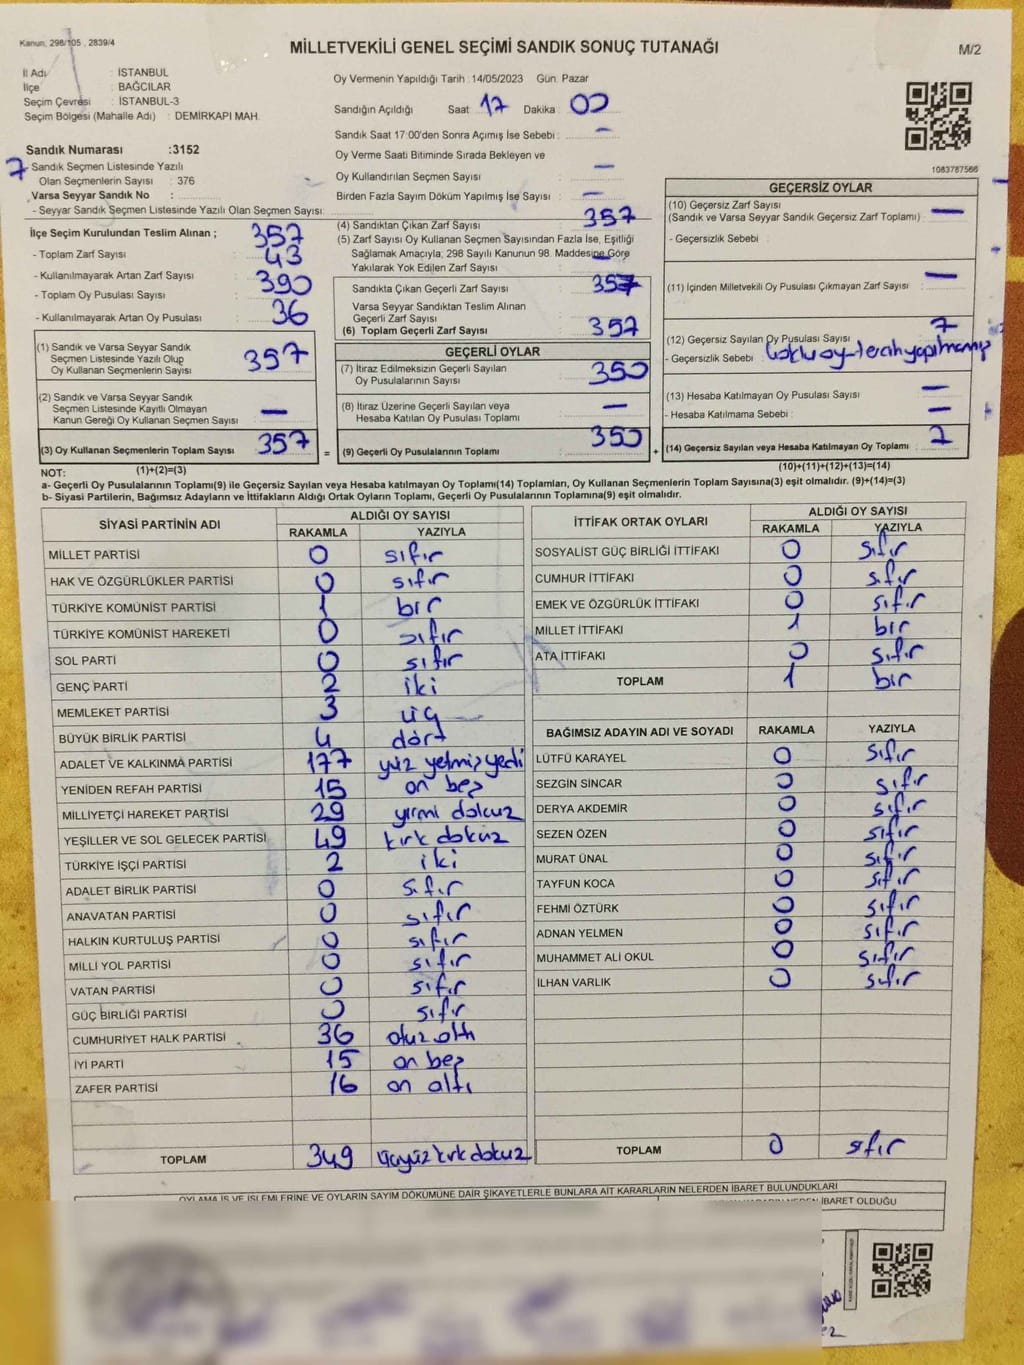 Kanun, 298/105 , 2839/4
MİLLETVEKİLİ GENEL SEÇİMİ SANDIK SONUÇ TUTANAĞI
M/2
İl Adı : İSTANBUL
İlçe : BAĞCILAR
Seçim Çevresi : İSTANBUL-3
Seçim Bölgesi (Mahalle Adı) : DEMİRKAPI MAH.
Sandık Numarası :3152
7
Sandık Seçmen Listesinde Yazılı
Olan Seçmenlerin Sayısı : 376
Varsa Seyyar Sandık No :
- Seyyar Sandık Seçmen Listesinde Yazılı Olan Seçmen Sayısı:
İlçe Seçim Kurulundan Teslim Alınan ;
357
- Toplam Zarf Sayısı : 43
- Kullanılmayarak Artan Zarf Sayısı : 390
- Toplam Oy Pusulası Sayısı :
- Kullanılmayarak Artan Oy Pusulası : 36
(1) Sandık ve Varsa Seyyar Sandık
Seçmen Listesinde Yazılı Olup
Oy Kullanan Seçmenlerin Sayısı : 357
(2) Sandık ve Varsa Seyyar Sandık
Seçmen Listesinde Kayıtlı Olmayan
Kanun Gereği Oy Kullanan Seçmen Sayısı : —
(3) Oy Kullanan Seçmenlerin Toplam Sayısı : 357
(1)+(2)=(3)
Oy Vermenin Yapıldığı Tarih : 14/05/2023 Gün: Pazar
Sandığın Açıldığı Saat : 17 Dakika : 00
Sandık Saat 17:00'den Sonra Açımış İse Sebebi : —
Oy Verme Saati Bitiminde Sırada Bekleyen ve
Oy Kullandırılan Seçmen Sayısı : —
Birden Fazla Sayım Döküm Yapılmış İse Sayısı : —
(4) Sandıktan Çıkan Zarf Sayısı : 357
(5) Zarf Sayısı Oy Kullanan Seçmen Sayısından Fazla İse, Eşitliği
Sağlamak Amacıyla; 298 Sayılı Kanunun 98. Maddesine Göre
Yakılarak Yok Edilen Zarf Sayısı : —
Sandıkta Çıkan Geçerli Zarf Sayısı : 357
Varsa Seyyar Sandıktan Teslim Alınan
Geçerli Zarf Sayısı :
(6) Toplam Geçerli Zarf Sayısı : 357
GEÇERLİ OYLAR
(7) İtiraz Edilmeksizin Geçerli Sayılan
Oy Pusulalarının Sayısı : 350
(8) İtiraz Üzerine Geçerli Sayılan veya
Hesaba Katılan Oy Pusulası Toplamı : —
= (9) Geçerli Oy Pusulalarının Toplamı : 350
1083787566
GEÇERSİZ OYLAR
(10) Geçersiz Zarf Sayısı
(Sandık ve Varsa Seyyar Sandık Geçersiz Zarf Toplamı) : —
- Geçersizlik Sebebi :
(11) İçinden Milletvekili Oy Pusulası Çıkmayan Zarf Sayısı : —
(12) Geçersiz Sayılan Oy Pusulası Sayısı : 7
- Geçersizlik Sebebi :
(13) Hesaba Katılmayan Oy Pusulası Sayısı : —
- Hesaba Katılmama Sebebi : —
+ (14) Geçersiz Sayılan veya Hesaba Katılmayan Oy Toplamı : 7
(10)+(11)+(12)+(13)=(14)
NOT:
a- Geçerli Oy Pusulalarının Toplamı(9) ile Geçersiz Sayılan veya Hesaba katılmayan Oy Toplamı(14) Toplamları, Oy Kullanan Seçmenlerin Toplam Sayısına(3) eşit olmalıdır. (9)+(14)=(3)
b- Siyasi Partilerin, Bağımsız Adayların ve İttifakların Aldığı Ortak Oyların Toplamı, Geçerli Oy Pusulalarının Toplamına(9) eşit olmalıdır.
SİYASİ PARTİNİN ADI
ALDIĞI OY SAYISI
RAKAMLA YAZIYLA
MİLLET PARTİSİ 0 sıfır
HAK VE ÖZGÜRLÜKLER PARTİSİ 0 sıfır
TÜRKİYE KOMÜNİST PARTİSİ 1 bir
TÜRKİYE KOMÜNİST HAREKETİ 0 sıfır
SOL PARTİ 0 sıfır
GENÇ PARTİ 2 iki
MEMLEKET PARTİSİ 3 üç
BÜYÜK BİRLİK PARTİSİ 4 dört
ADALET VE KALKINMA PARTİSİ 177 yüz yetmiş yedi
YENİDEN REFAH PARTİSİ 15 on beş
MİLLİYETÇİ HAREKET PARTİSİ 29 yirmi dokuz
YEŞİLLER VE SOL GELECEK PARTİSİ 49 kırk dokuz
TÜRKİYE İŞÇİ PARTİSİ 2 iki
ADALET BİRLİK PARTİSİ 0 sıfır
ANAVATAN PARTİSİ 0 sıfır
HALKIN KURTULUŞ PARTİSİ 0 sıfır
MİLLİ YOL PARTİSİ 0 sıfır
VATAN PARTİSİ 0 sıfır
GÜÇ BİRLİĞİ PARTİSİ 0 sıfır
CUMHURİYET HALK PARTİSİ 36 otuz altı
İYİ PARTİ 15 on beş
ZAFER PARTİSİ 16 on altı
TOPLAM 349 üçyüz kırk dokuz
İTTİFAK ORTAK OYLARI
ALDIĞI OY SAYISI
RAKAMLA YAZIYLA
SOSYALİST GÜÇ BİRLİĞİ İTTİFAKI 0 sıfır
CUMHUR İTTİFAKI 0 sıfır
EMEK VE ÖZGÜRLÜK İTTİFAKI 0 sıfır
MİLLET İTTİFAKI 1 bir
ATA İTTİFAKI 0 sıfır
TOPLAM 1 bir
BAĞIMSIZ ADAYIN ADI VE SOYADI RAKAMLA YAZIYLA
LÜTFÜ KARAYEL 0 sıfır
SEZGİN SİNCAR 0 sıfır
DERYA AKDEMİR 0 sıfır
SEZEN ÖZEN 0 sıfır
MURAT ÜNAL 0 sıfır
TAYFUN KOCA 0 sıfır
FEHMİ ÖZTÜRK 0 sıfır
ADNAN YELMEN 0 sıfır
MUHAMMET ALİ OKUL 0 sıfır
İLHAN VARLIK 0 sıfır
TOPLAM 0 sıfır
OYLAMA İŞ VE İŞLEMLERİNE VE OYLARIN SAYIM DÖKÜMÜNE DAİR ŞİKAYETLERLE BUNLARA AİT KARARLARIN NELERDEN İBARET BULUNDUKLARI
İBARET OLDUĞU